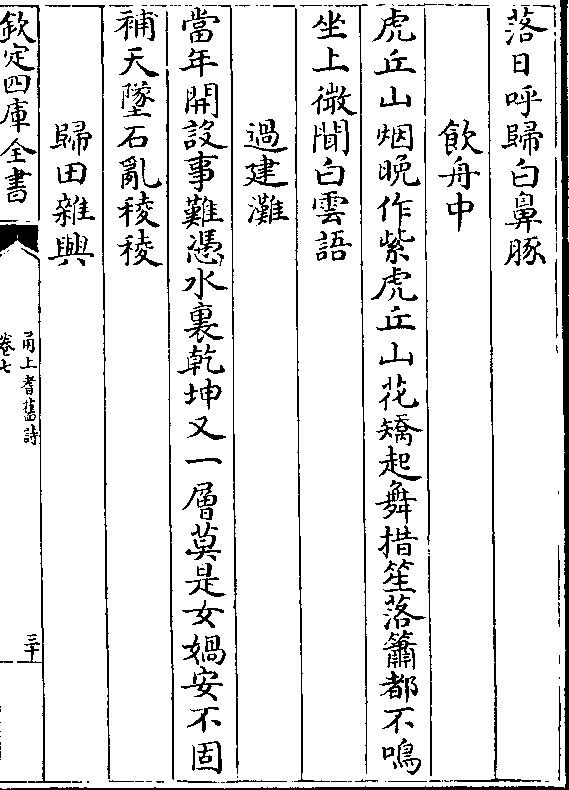 落日呼歸白鼻豚
飲舟中
虎丘山烟晚作紫虎丘山花矯起舞措笙落簫都不鳴
坐上微聞白雲語
過建灘
當年開設事難憑水裏乾坤又一層莫是女媧安不固
補天墜石亂稜稜
歸田雜興
欽定四庫全書
甬上耆舊詩
卷七
三十